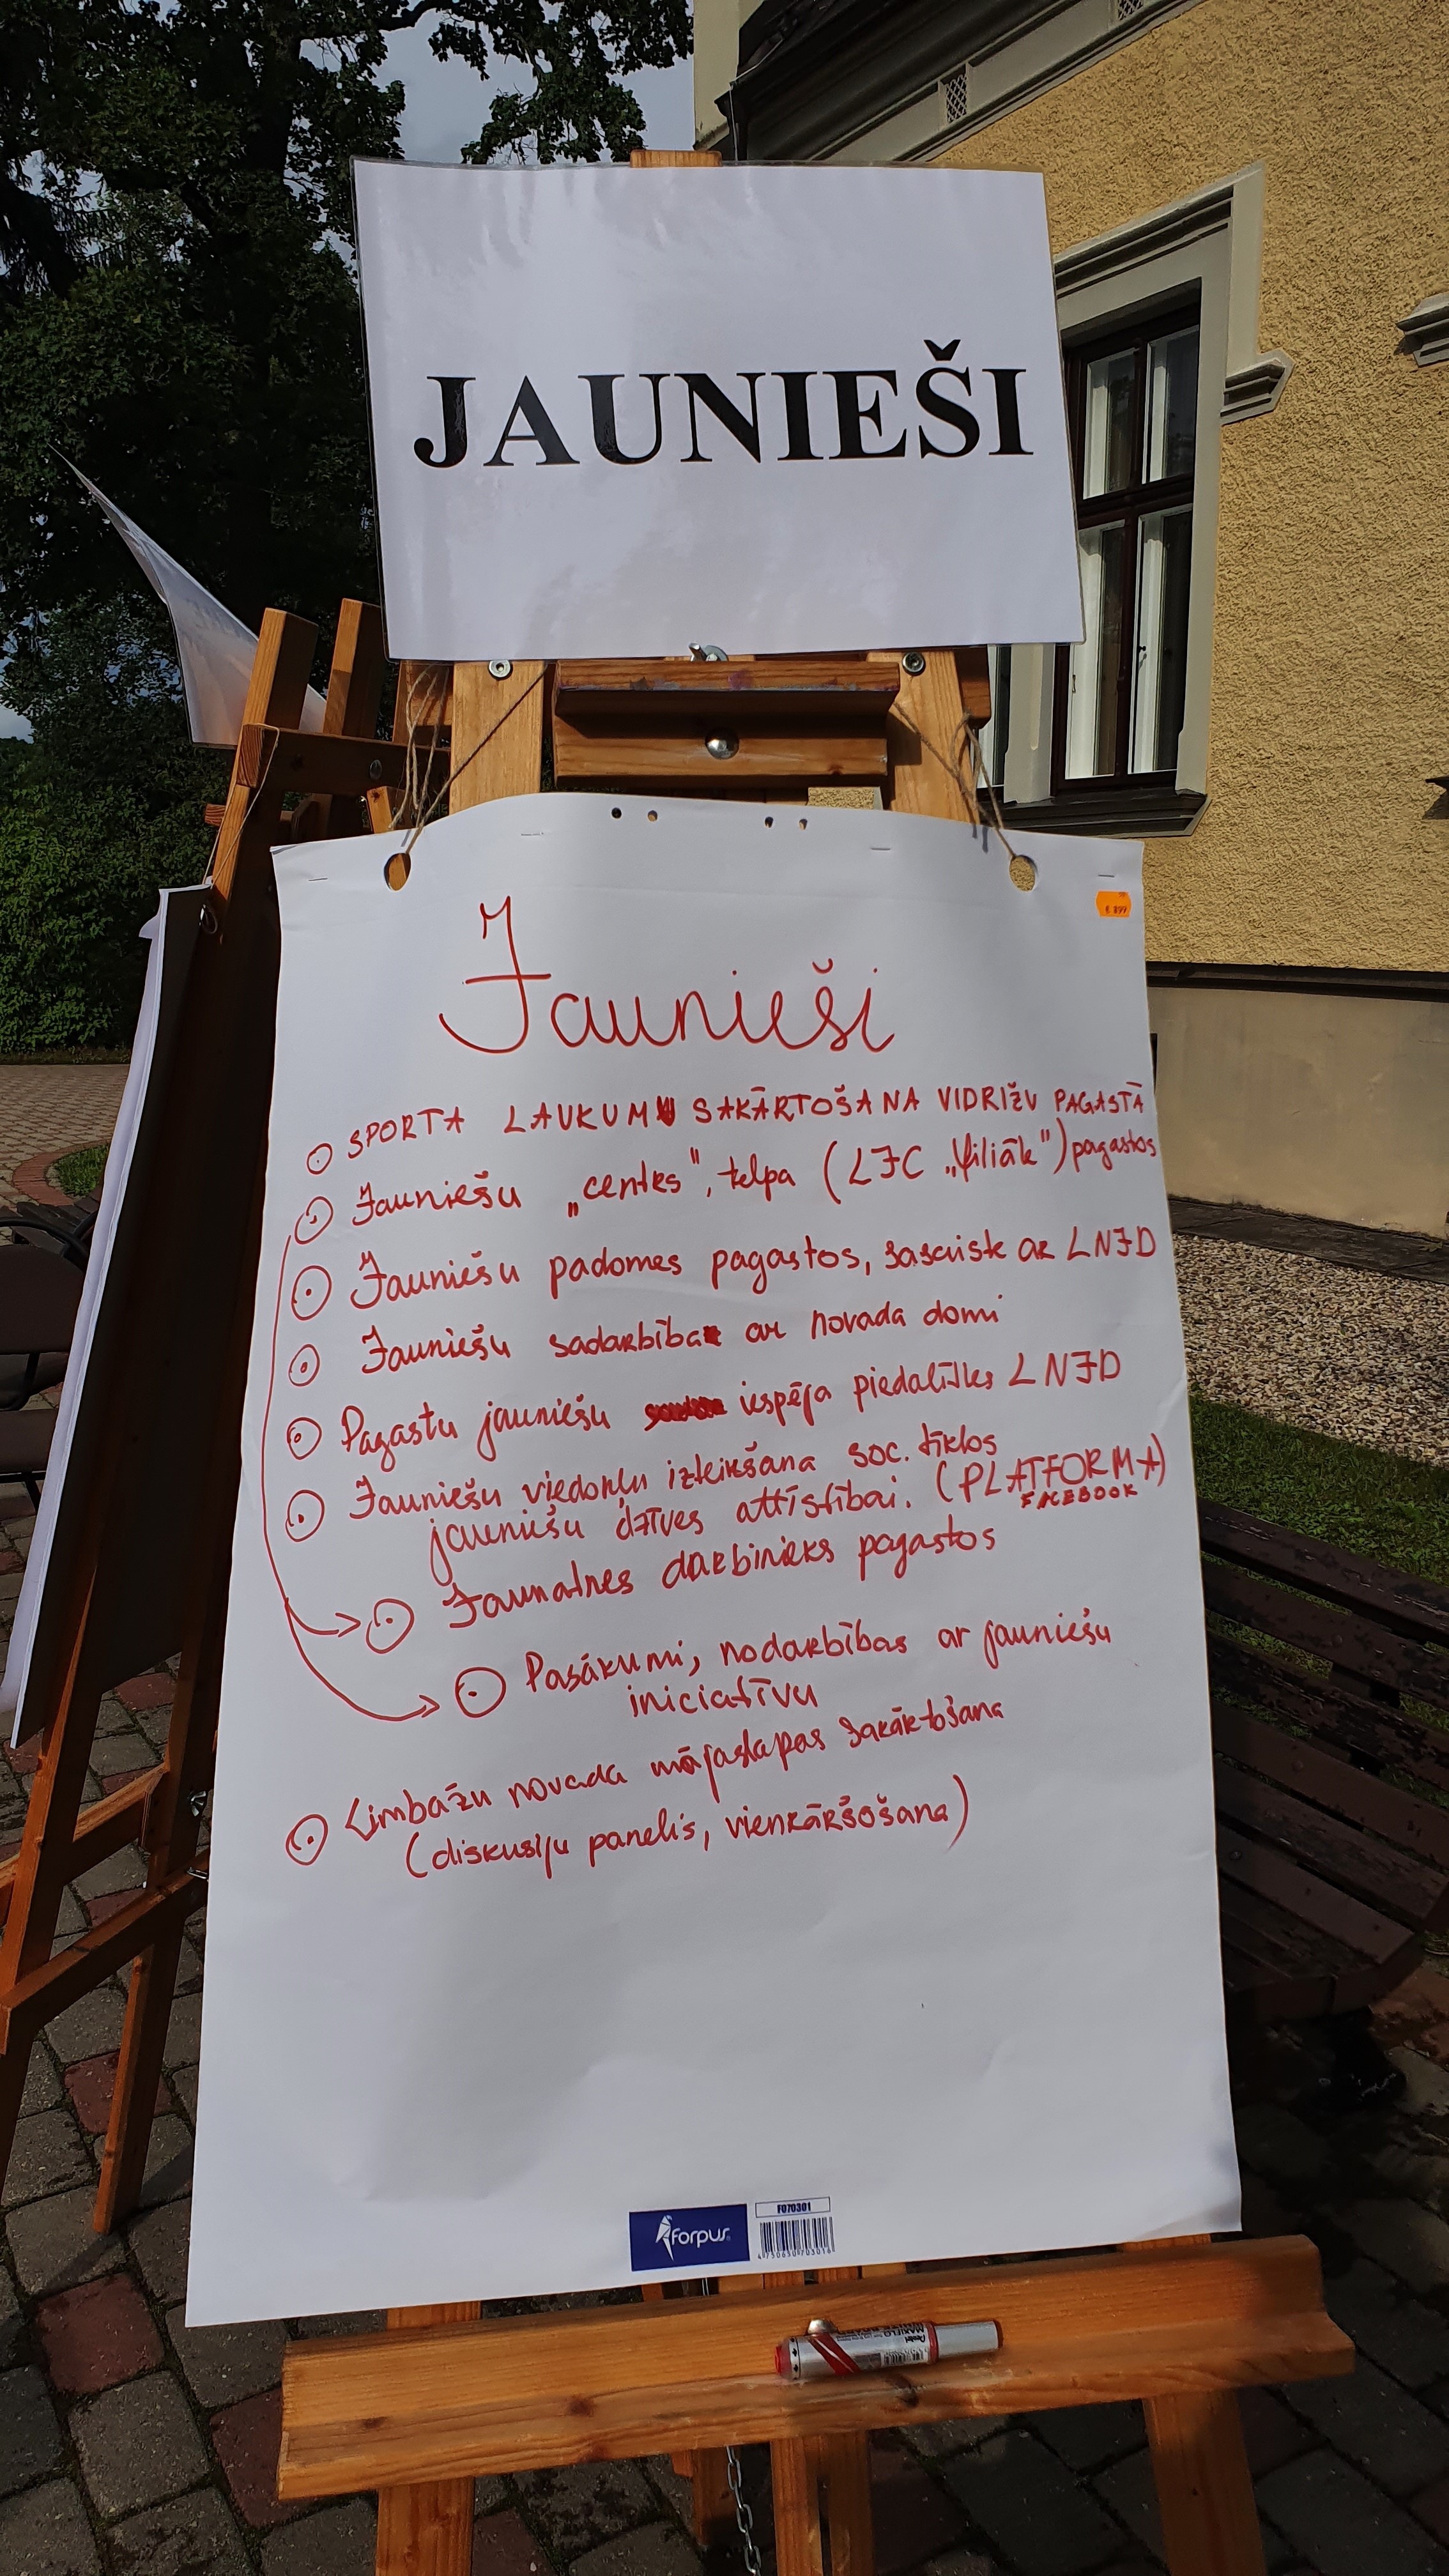 JAUNIEŠI
€ 8.99
Jaunieši
SPORTA LAUKUMU SAKĀRTOŠANA VIDRIŽU PAGASTĀ
Jauniešu „centrs", telpa (LJC „filiāle") pagastos
Jauniešu padomes pagastos, sasaiste ar LNJD
Jauniešu sadarbība ar novada domi
Pagastu jauniešu iespēja piedalīties LNJD
Jauniešu viedokļu izteikšana soc. tīklos
jauniešu dzīves attīstībai. (PLATFORMA)
FACEBOOK
Jaunatnes darbinieks pagastos
Pasākumi, nodarbības ar jauniešu
iniciatīvu
Limbažu novada mājaslapas sakārtošana
(diskusiju panelis, vienkāršošana)
forpus
FO70301
4750650703016
Pentel
MAXIFLO